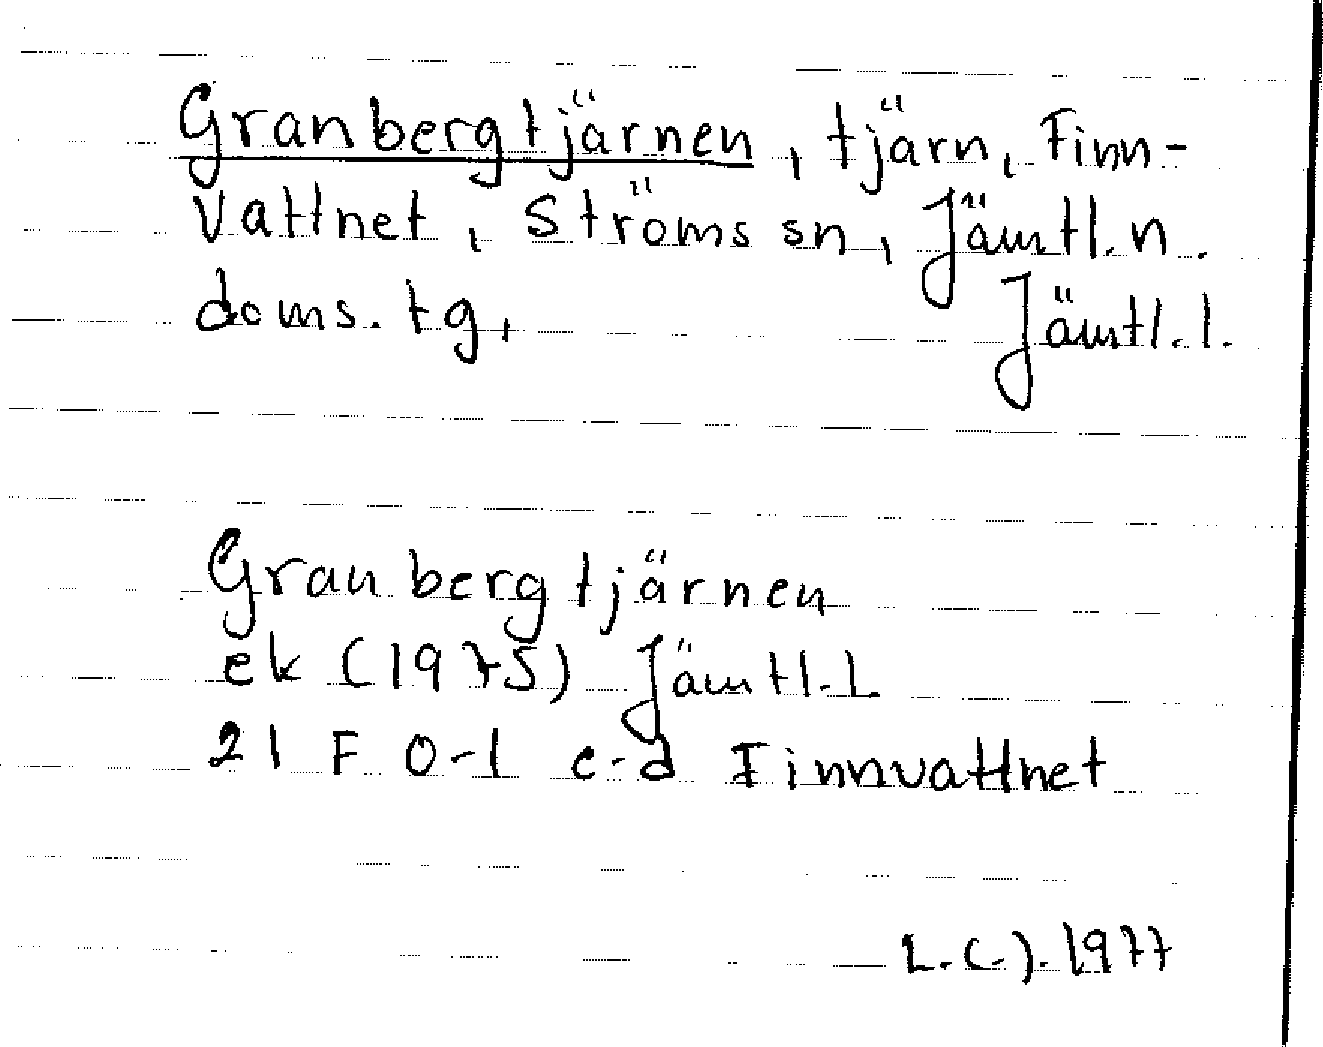 Granbergtjärnen, tjärn, Finn-
vattnet, Ströms sn, Jämtl.n.
doms.tg, Jämtl.l.
Granbergtjärnen
ek (1975) Jämtl.l
21 F 0-1 c-d Finnvattnet
1977